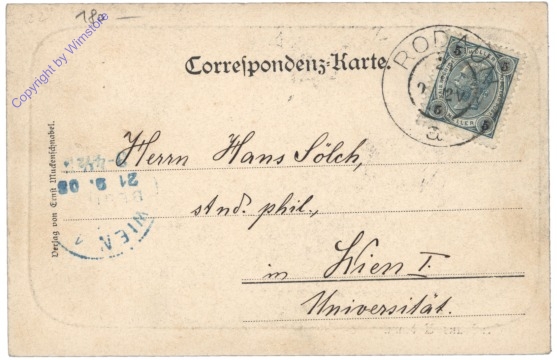 18.-
Correspondenz-Karte.
RODAUN
5 5
HELLER
5 5
a
Herrn Hans Sölch,
stud. phil.,
in Wien I.
Universität.
Verlag von Ernst Mackenschnabel.
21 9. 03
WIEN
copyright by Wimstore